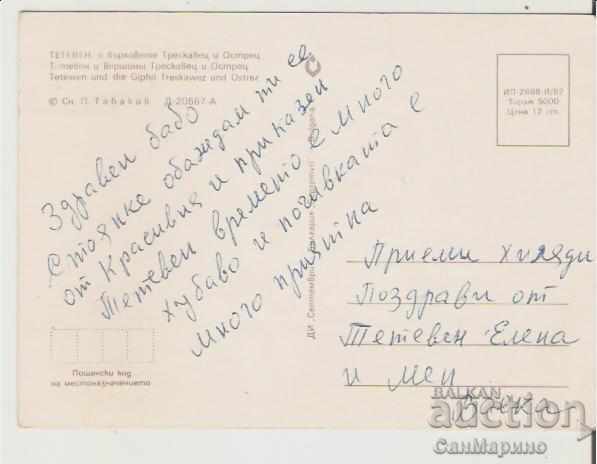 ТЕТЕВЕН с върховете Трескавец и Острец
Тетевен и вершины Трескавец и Острец
Tetewen und die Gipfel Treskawez und Ostrez
© Сн. П. Табаков Д-20667-А
ИП-2688-II/87
Тираж 5000
Цена 12 ст.
Здравей бабо
Стоянке обаждам ти се
от красивия и приказен
Тетевен времето е много
хубаво и почивката е
много приятна
Приеми хиляди
Поздрави от
Тетевен Елена
и мен
Ванка
ДИ „Септември“
Пощенски код
на местоназначението
BALKAN
auction
СанМарино